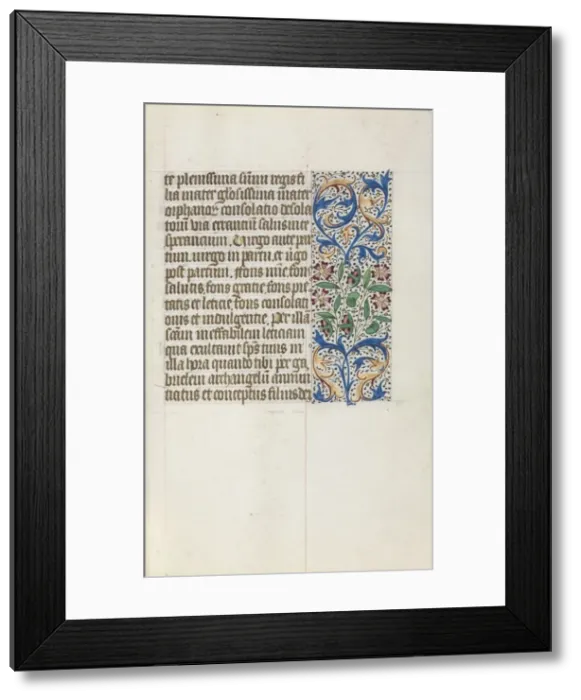 te plenissima su̅mi regis fi
lia mater gl̅osissima mater
orphanoꝝ consolatio desola
toru̅ via erra̅tiu̅ salus in te
sperancium. Virgo ante par
tum. virgo in partu. et u̅go
post partum. ffons mi̅e fons
salutis fons gratie. fons pie
tatis et leticie fons consolati
onis et indulgentie. Per illa̅
sca̅m ineffabilem leticiam
qua exultauit sp̅s tuus in
illa hora quando tibi per ga
brielem archangelu̅ annun
tiatus et conceptus filius dei